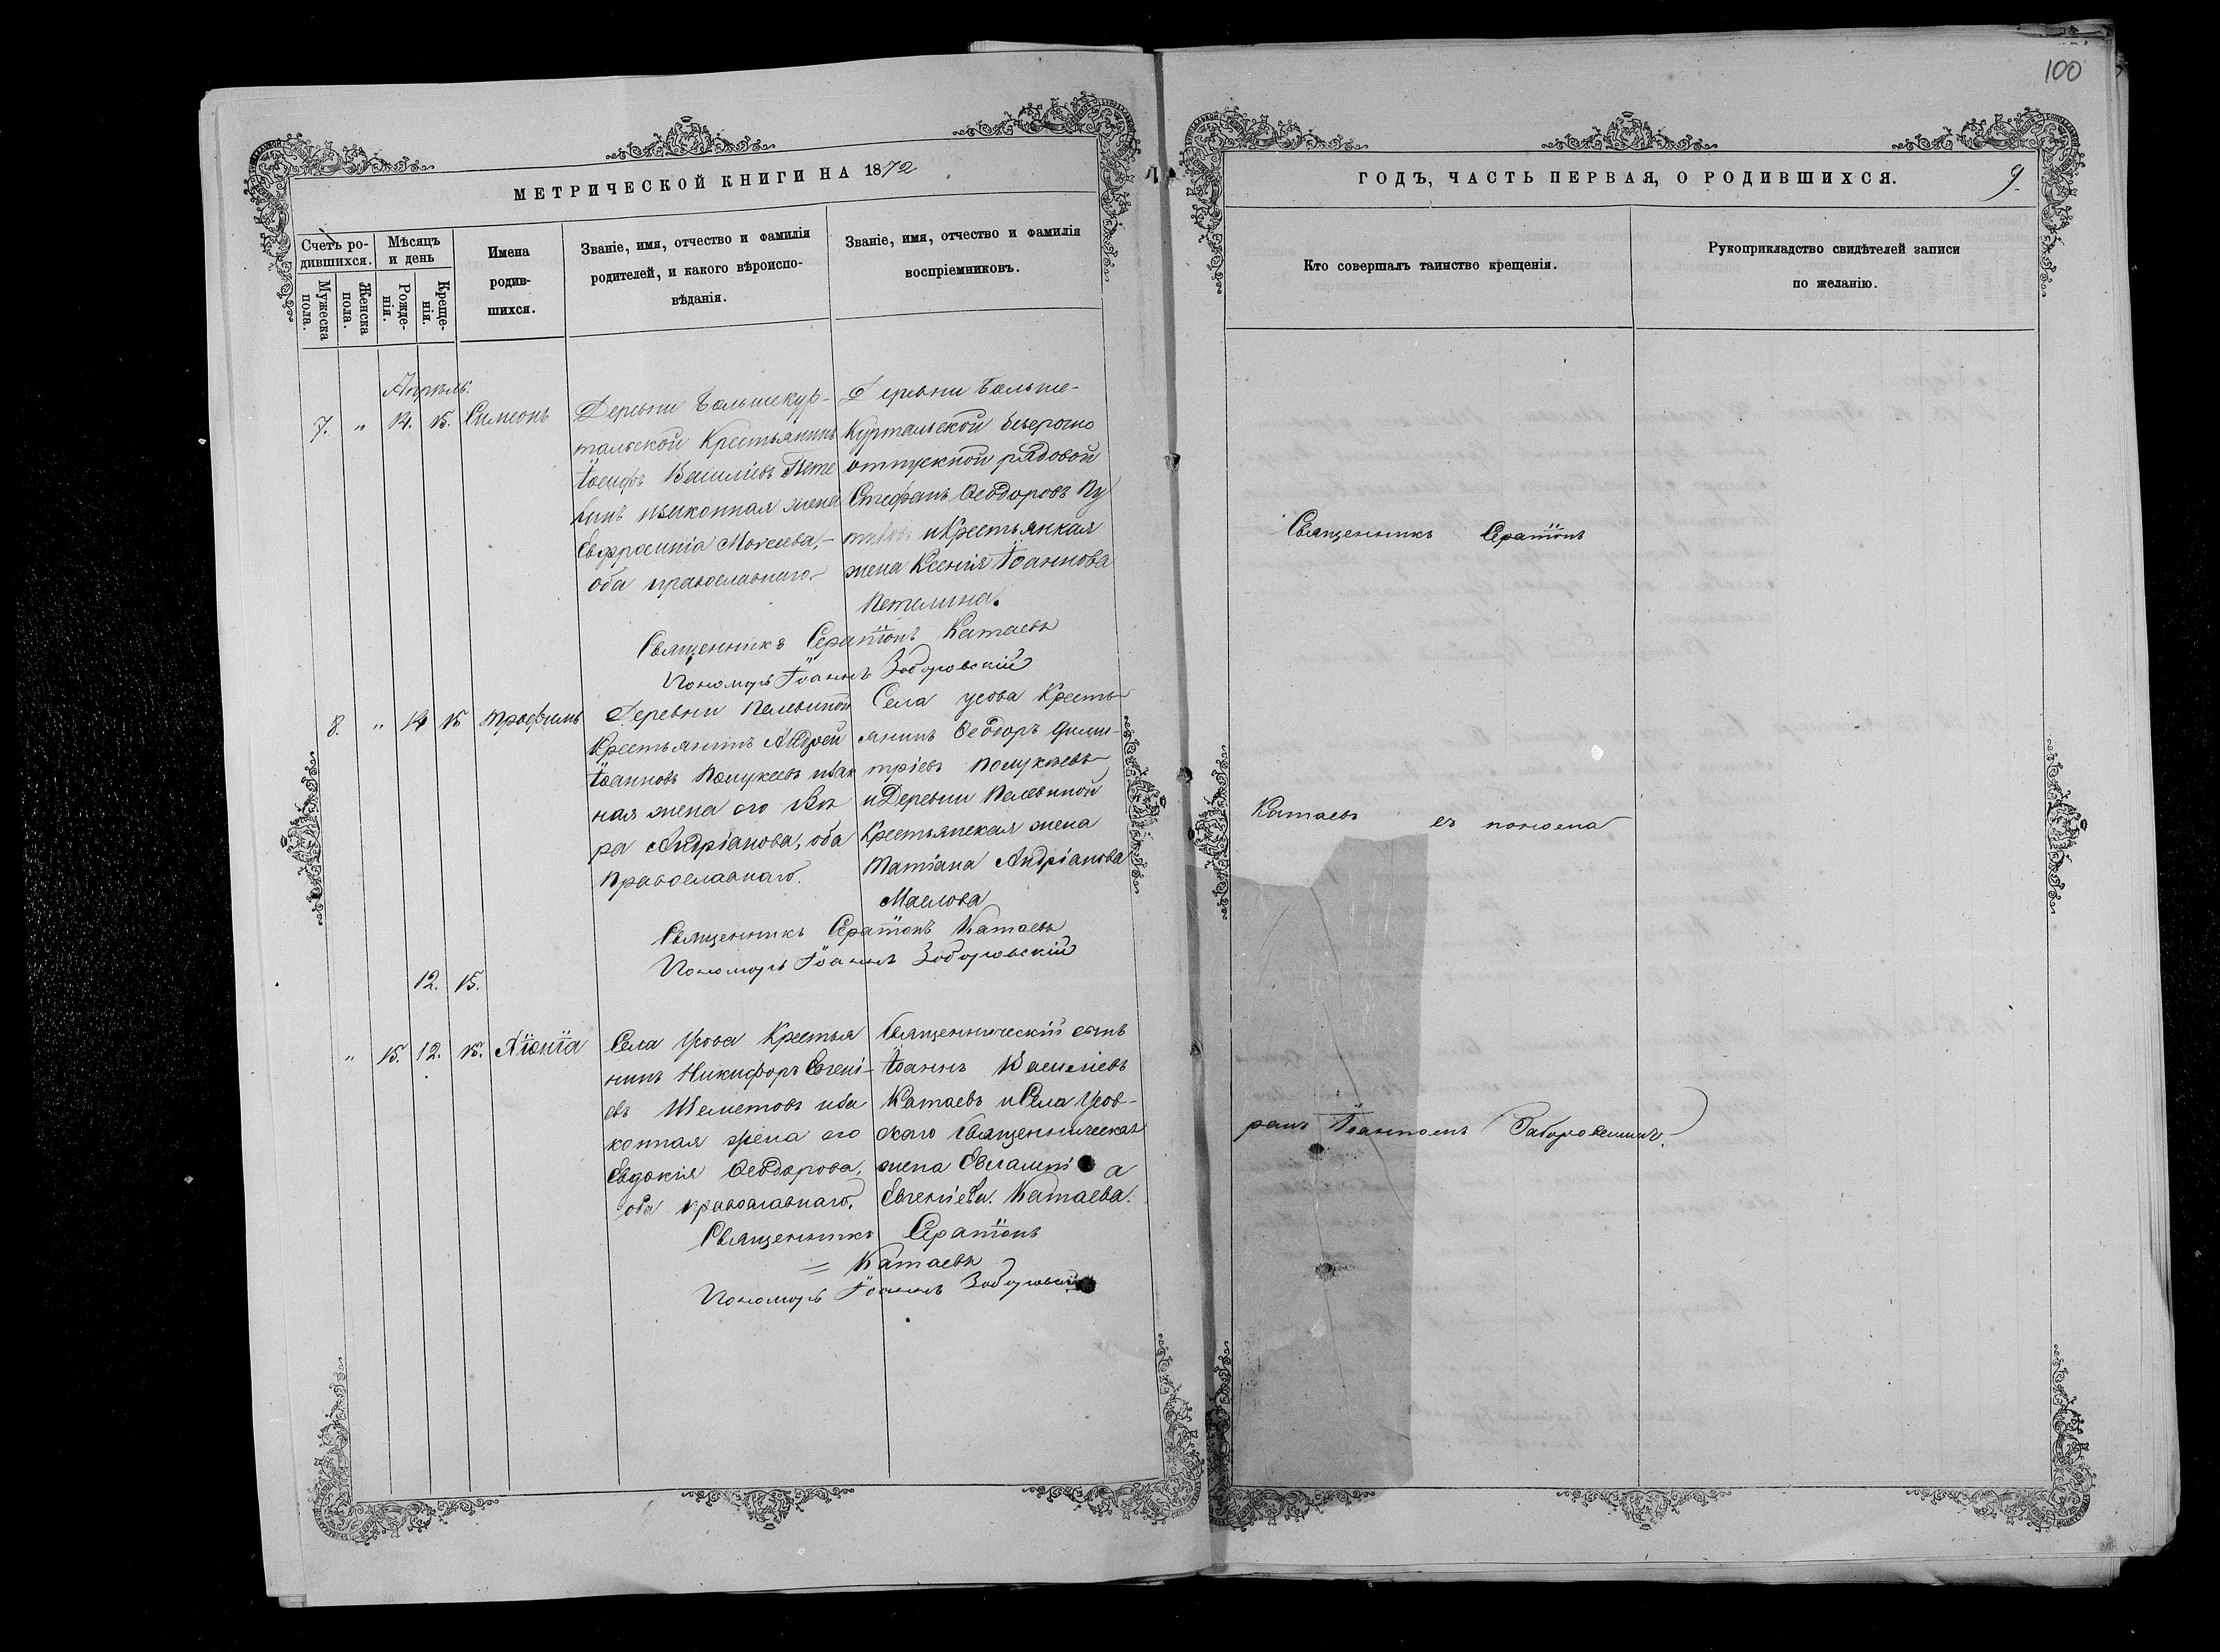 100
МЕТРИЧЕСКОЙ КНИГИ НА 1872
ГОДЪ, ЧАСТЬ ПЕРВАЯ, О РОДИВШИХСЯ.
9.
Счетъ ро-
дившихся.
Мужеска
пола.
Женска
пола.
Мѣсяцъ
и день
Рожде-
нія.
Креще-
нія.
Имена
родив-
шихся.
Званіе, имя, отчество и фамилія
родителей, и какого вѣроиспо-
вѣданія.
Званіе, имя, отчество и фамилія
воспріемниковъ.
Кто совершалъ таинство крещенія.
Рукоприкладство свидѣтелей записи
по желанію.
Апрѣль.
7. " 14. 15. Симеонъ
Деревни Больше кур-
тальской Крестьянинъ
Іосифъ Василіевъ Пете
линъ изаконная жена
Евфросинія Моѵсеева,-
оба православнаго
Деревни Больше-
Куртальской безсрочно
отпускной рядовой
Стефанъ Ѳеодоровъ Пу
и Крестьянская
жена Ксенія Іоаннова
Петелина.
Священникъ Серапіонъ Катаевъ
Пономарь Іоаннъ Заборовскій
8. " 14 15 Трофимъ
Деревни Пелевиной
Крестьянинъ Андрей
Іоанновъ Полукеевъ изак
ная жена его Вар
ра Андріанова, оба
Православнаго.
Села Усова Кресть
янинъ Ѳеодоръ Дими-
тріевъ Полукѣевъ
и Деревни Пелевиной
Крестьянская жена
Татіана Андріанова
Маслова
Священникъ Серапіонъ Катаевъ
Пономарь Іоаннъ Заборовскій
12. 15.
" 15. 12. 15. Аѳонія
Села Усова Крестья
нинъ Никифоръ Евгені-
евъ Шеметовъ иза
конная жена его
Евдокія Ѳеодорова,
оба православнаго.
Священническій сынъ
Іоаннъ Василіевъ
Катаевъ и Села Усов-
скаго Священническая
жена Евлампі а
Евгеніева Катаева.
Священникъ Серапіонъ
= Катаевъ
Пономарь Іоаннъ Заборовскій
Священникъ Серапіонъ
Катаевъ съ понома
ремъ Іоанномъ Заборовскимъ.